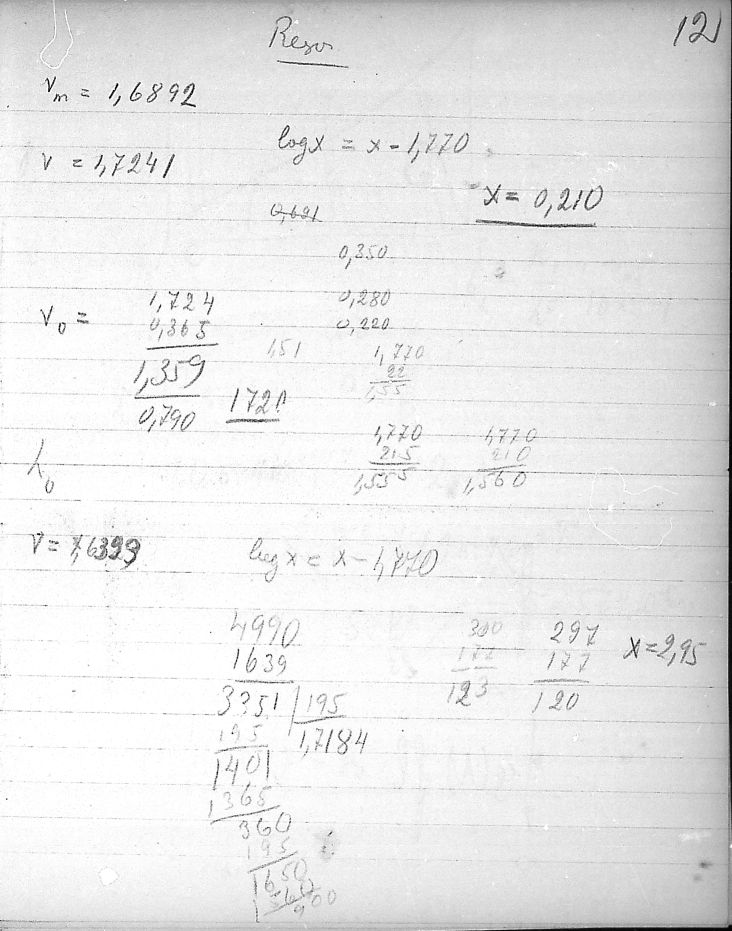 12
v_m = 1,6892
log x = x - 1,770
v = 1,7241
x = 0,210
0,621
0,350
1,724
0,280
v_0 =
0,365
0,220
1,51
1,770
1,359
22
1,55
0,790
1720
1,770
1,770
215
210
1,555
1,560
v = 1,6393
log x = x - 1,770
4990
300
297
x = 2,95
1639
177
177
3351
195
123
120
195
1,7184
1401
1365
360
195
1650